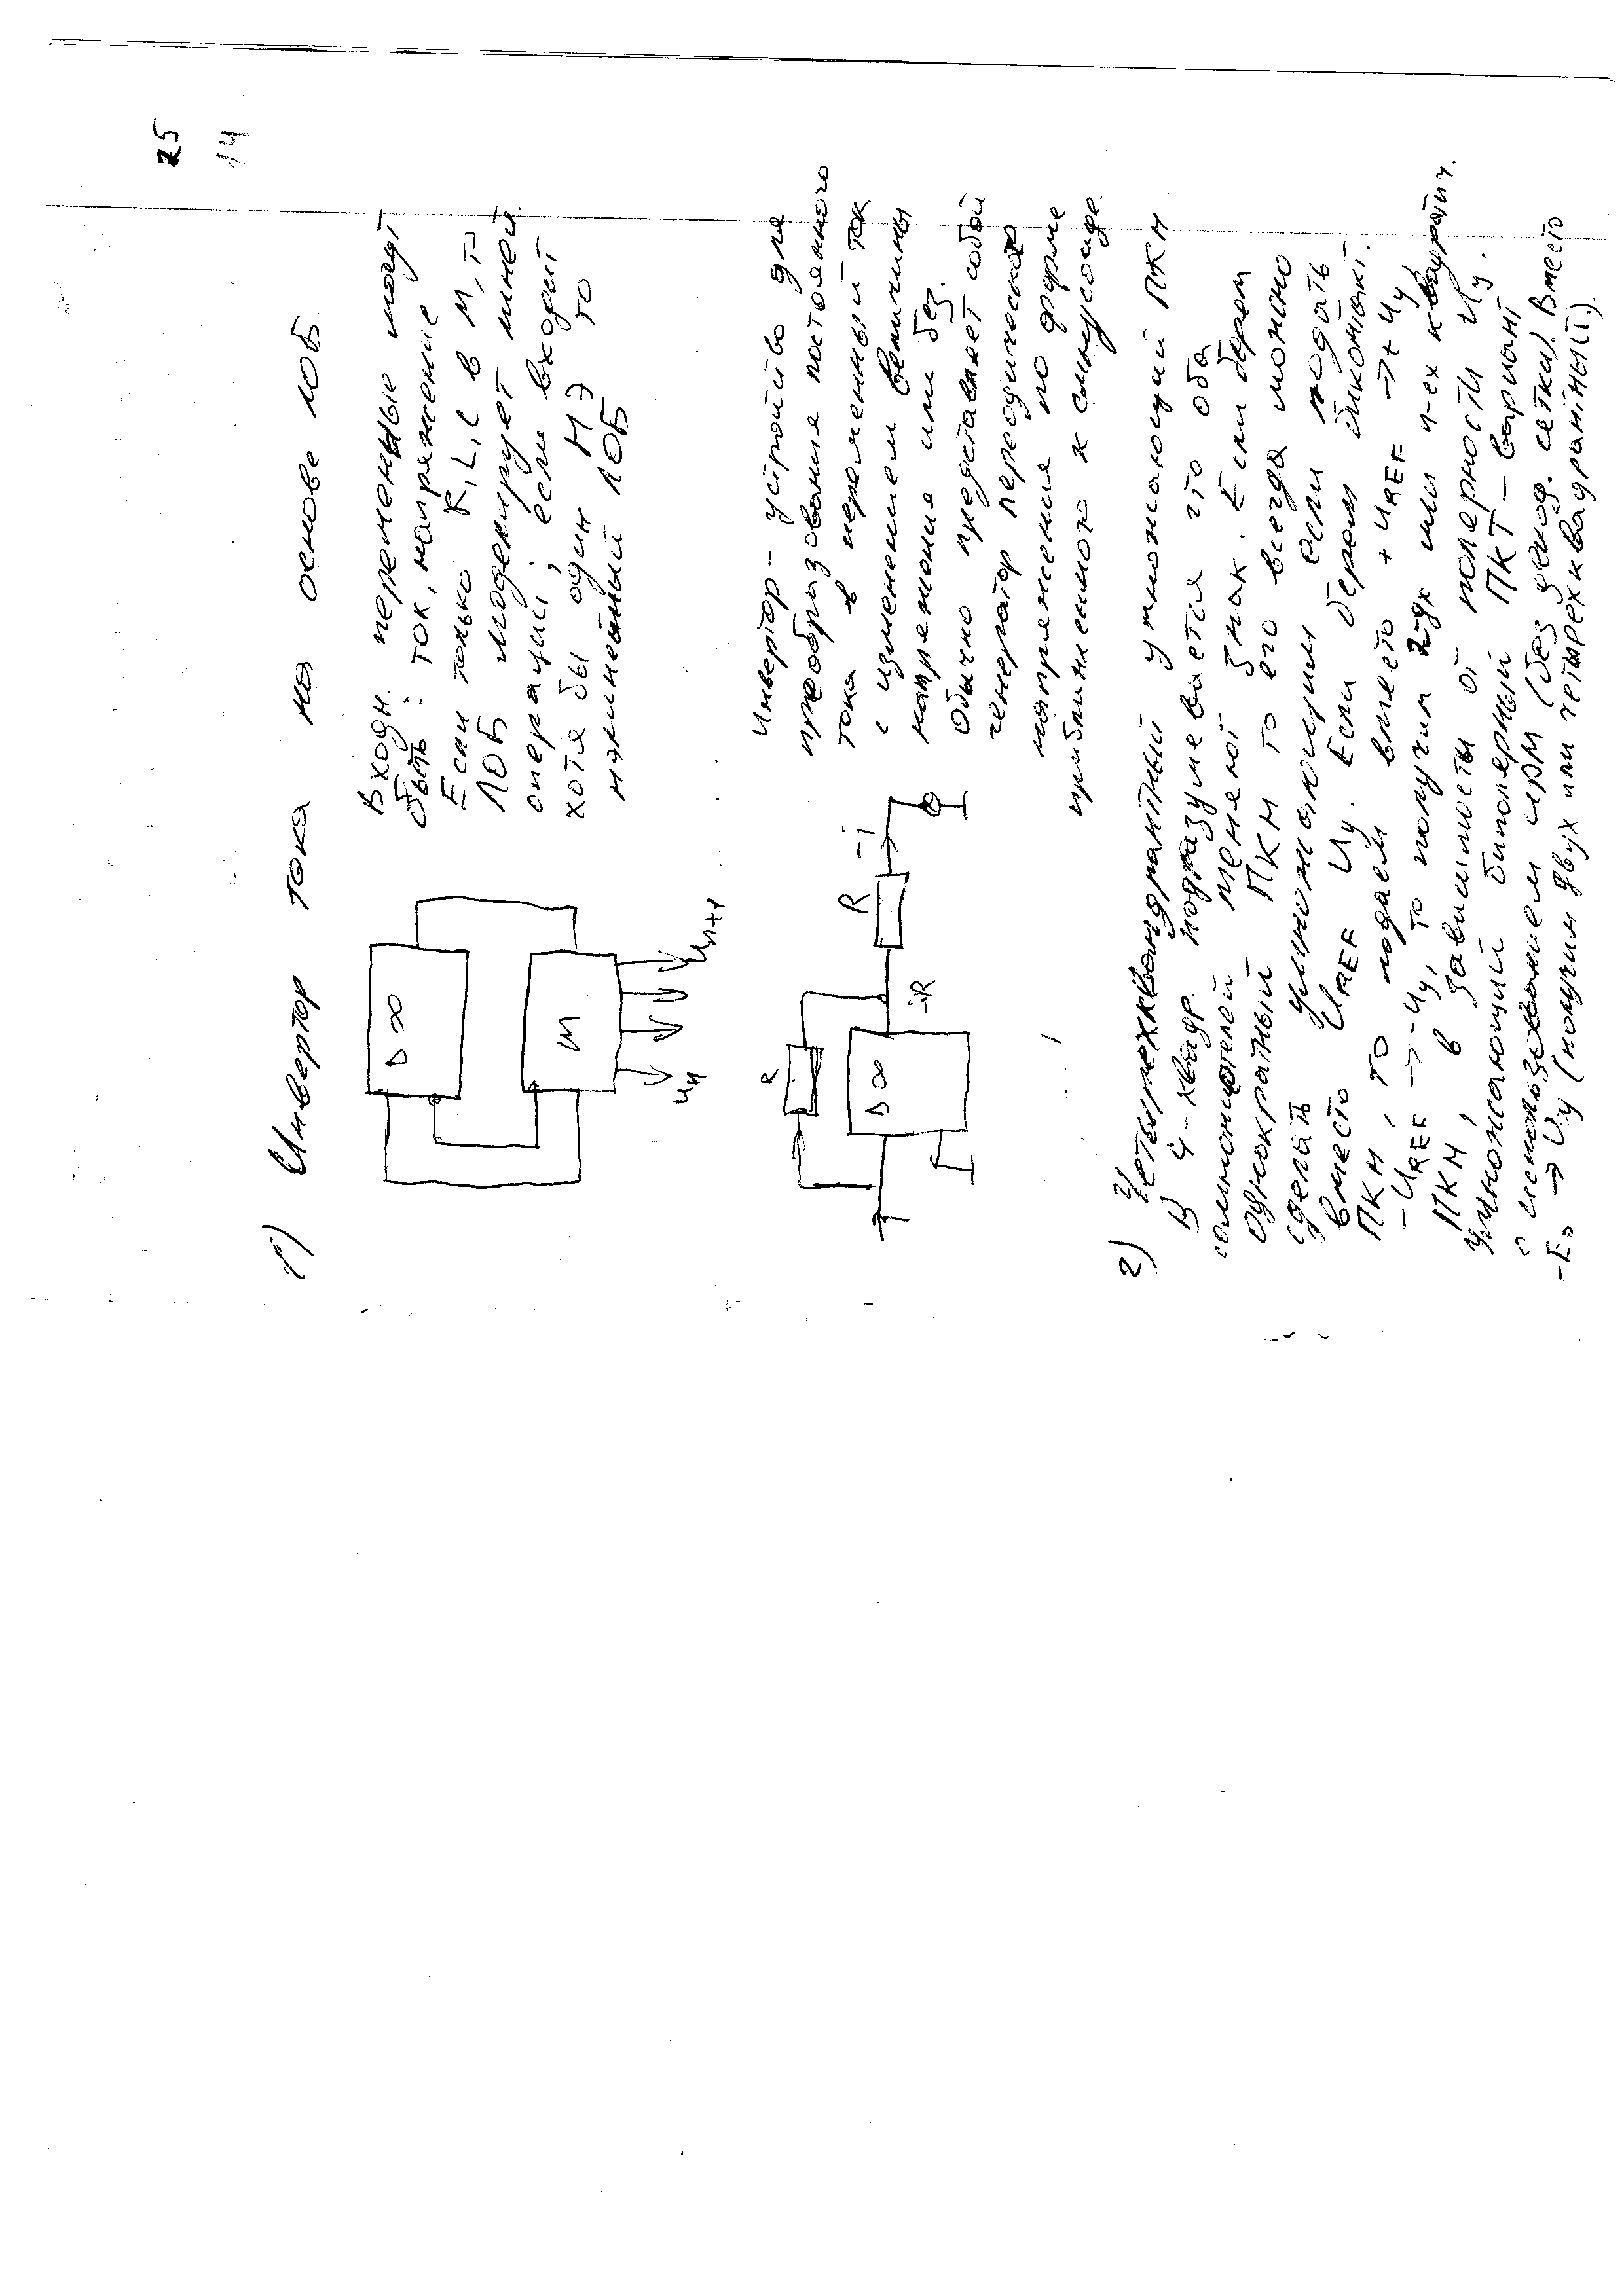 25
14
1) Инвертор тока на основе ЮБ
Входн. переменные могут
быть: ток, напряжение
Если только R, L, C в М, то
ЛОБ моделирует линей.
операции; если входит
хотя бы один НЭ то
нелинейный ЛОБ
D ∞
М
Un
Un+1
Инвертор - устройство для
преобразования постоянного
тока в переменный ток
с изменением величины
напряжение или без.
Обычно представляет собой
генератор периодического
напряжения по форме
приближенного к синусоиде.
R
D ∞
-R
R
-i
2) Четырехквандрантный умножающий ПКН
В 4-квадр. подразумевается что оба
сомножителей меняют знак. Если берем
однократный ПКН то его всегда можно
сделать умножающим если подать
вместо UREF Uу. Если берем биконтакт.
ПКН, то подаем вместо + UREF → + Uу
- UREF → - Uу, то получим 2-ух или 4-ех квадратич.
ПКН, в зависимости от полярности Uу.
Умножающий биполярный ПКТ - вариант
с использованием ЦАМ (без декод. сетки). Вместо
-E₀ → Uу (получим двух или четырехквадрантный).